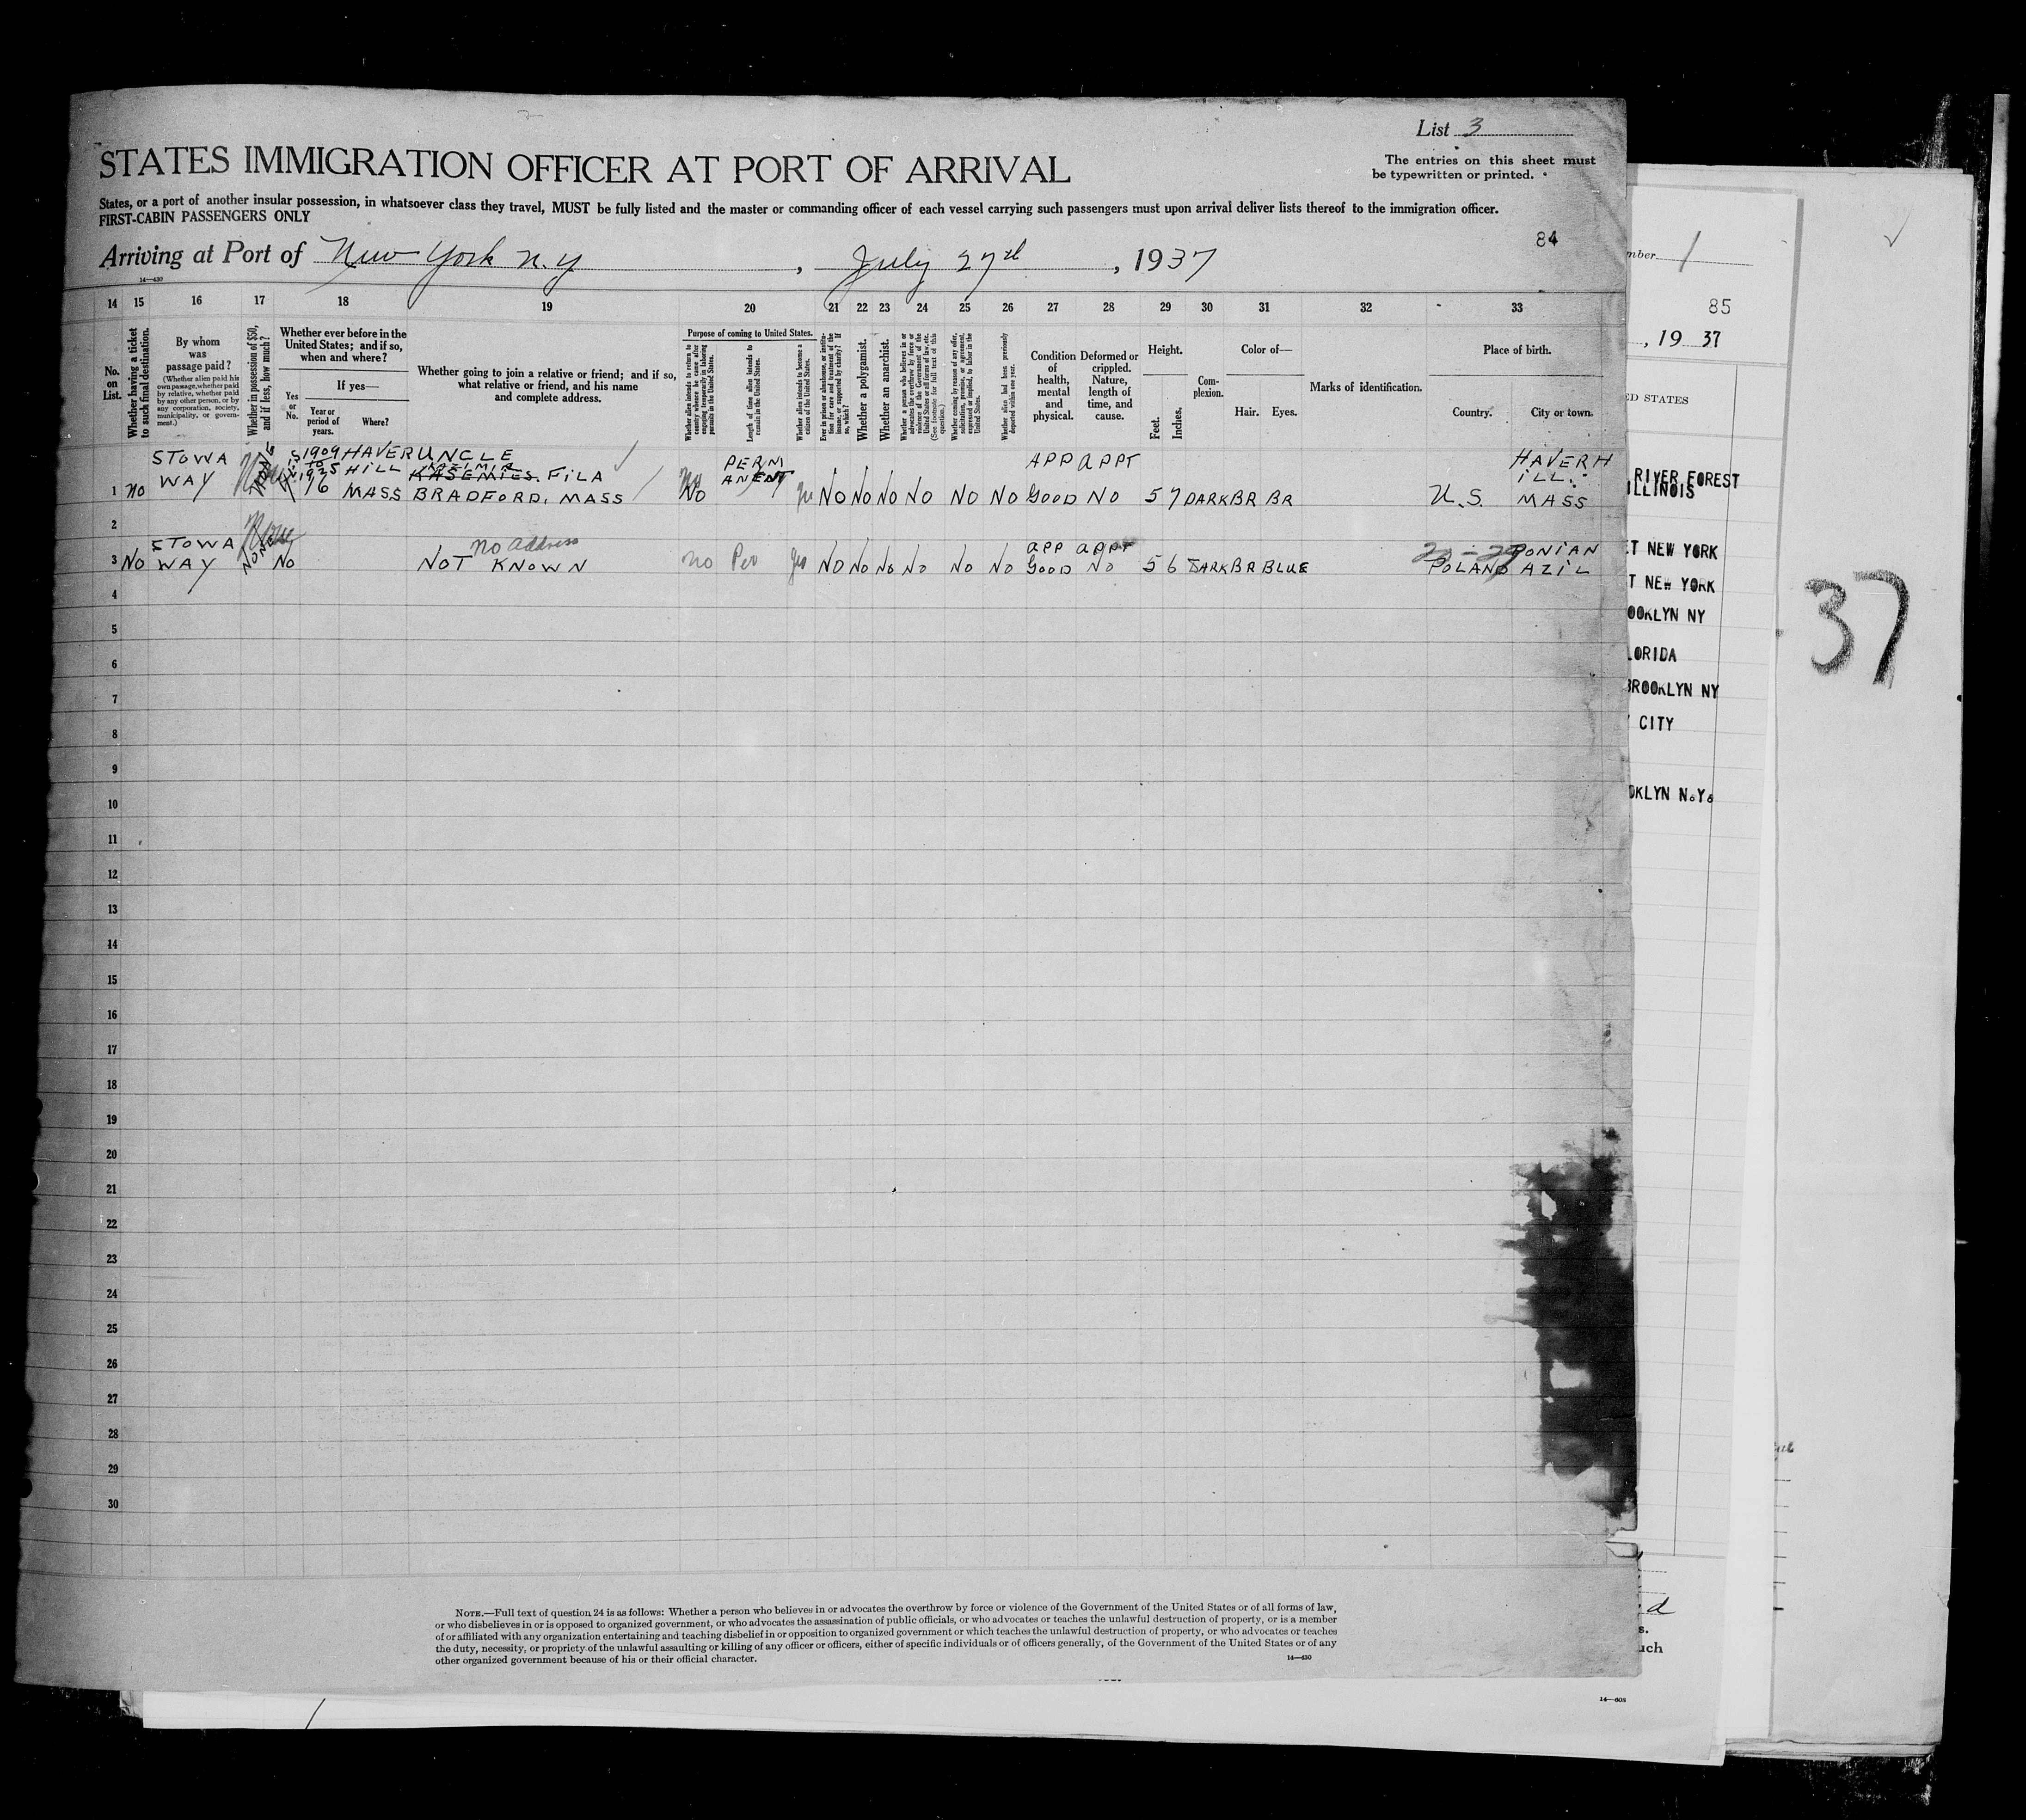 List 3
STATES IMMIGRATION OFFICER AT PORT OF ARRIVAL
The entries on this sheet must
be typewritten or printed.
States, or a port of another insular possession, in whatsoever class they travel, MUST be fully listed and the master or commanding officer of each vessel carrying such passengers must upon arrival deliver lists thereof to the immigration officer.
FIRST-CABIN PASSENGERS ONLY
84
Arriving at Port of New York N.Y , July 27th , 1937
14—430
14 15 16 17 18 19 20 21 22 23 24 25 26 27 28 29 30 31 32 33
No. on List.
Whether having a ticket to such final destination.
By whom was passage paid?
(Whether alien paid his own passage, whether paid by relative, whether paid by any other person, or by any corporation, society, municipality, or government.)
Whether in possession of $50, and if less, how much?
Whether ever before in the United States; and if so, when and where?
Yes or No.
If yes—
Year or period of years.
Where?
Whether going to join a relative or friend; and if so, what relative or friend, and his name and complete address.
Purpose of coming to United States.
Whether alien intends to return to country whence he came after engaging temporarily in laboring pursuits in the United States.
Length of time alien intends to remain in the United States.
Whether alien intends to become a citizen of the United States.
Ever in prison or almshouse, or institution for care and treatment of the insane, or supported by charity? If so, which?
Whether a polygamist.
Whether an anarchist.
Whether a person who believes in or advocates the overthrow by force or violence of the Government of the United States or all forms of law, etc. (See footnote for full text of this question.)
Whether coming by reason of any offer, solicitation, promise, or agreement, expressed or implied, to labor in the United States.
Whether alien had been previously deported within one year.
Condition of health, mental and physical.
Deformed or crippled. Nature, length of time, and cause.
Height.
Feet.
Inches.
Complexion.
Color of—
Hair. Eyes.
Marks of identification.
Place of birth.
Country. City or town.
STOWA 1909 HAVER UNCLE PERM APP APPT HAVERH
WAY 1935 HILL KASEMIES. FILA ANENT ILL.
1 NO 16 MASS BRADFORD, MASS No NO NO NO NO NO NO GOOD NO 5 7 DARK BR BR U.S. MASS
2 None
STOWA no Address APP APPT
3 NO WAY NONE NO NOT KNOWN no Per Yes NO NO NO NO NO NO GOOD NO 5 6 DARK BR BLUE POLAND AZIL
4
5
6
7
8
9
10
11
12
13
14
15
16
17
18
19
20
21
22
23
24
25
26
27
28
29
30
NOTE.—Full text of question 24 is as follows: Whether a person who believes in or advocates the overthrow by force or violence of the Government of the United States or of all forms of law,
or who disbelieves in or is opposed to organized government, or who advocates the assassination of public officials, or who advocates or teaches the unlawful destruction of property, or is a member
of or affiliated with any organization entertaining and teaching disbelief in or opposition to organized government or which teaches the unlawful destruction of property, or who advocates or teaches
the duty, necessity, or propriety of the unlawful assaulting or killing of any officer or officers, either of specific individuals or of officers generally, of the Government of the United States or of any
other organized government because of his or their official character.
14—430
mber 1
85
, 19 37
ED STATES
RIVER FOREST
ILLINOIS
ET NEW YORK
T NEW YORK
OOKLYN NY
LORIDA
BROOKLYN NY
CITY
OKLYN N.Y.
37
d
s.
uch
14—608